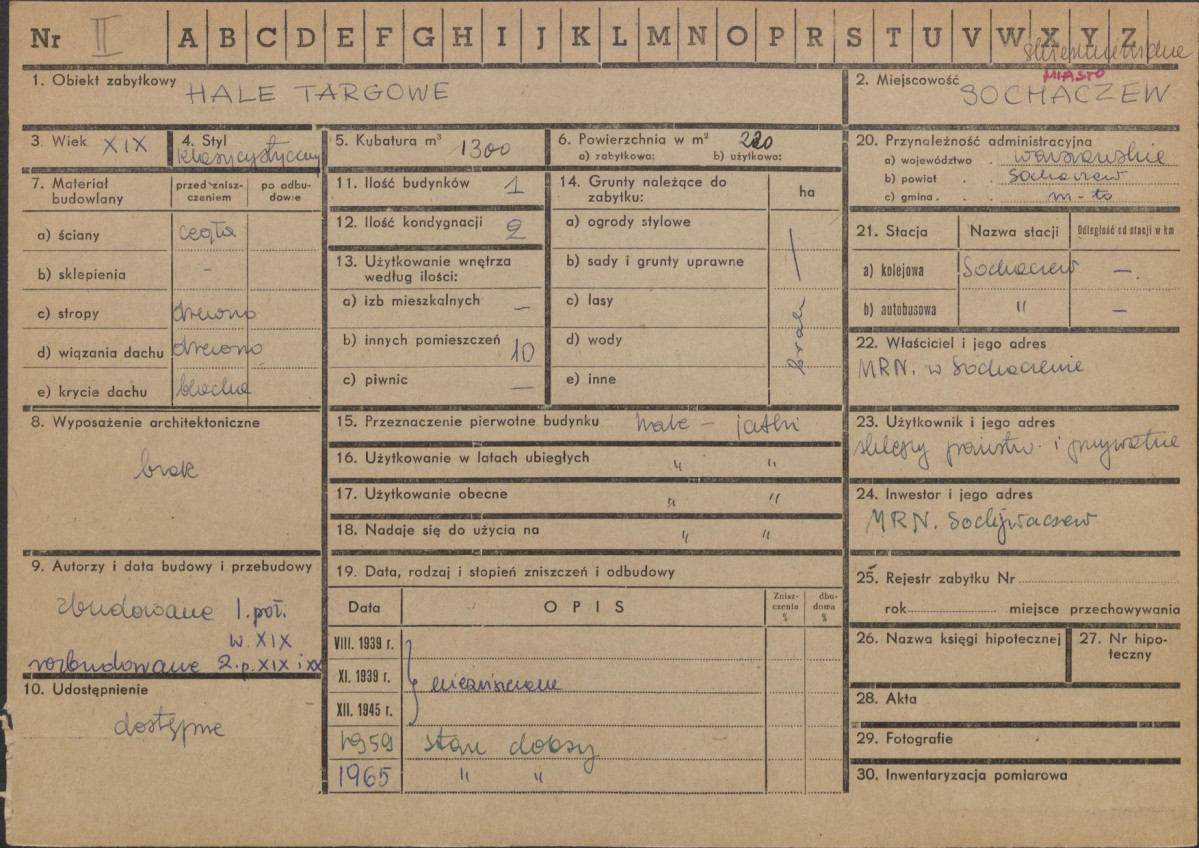 Nr II A B C D E F G H I J K L M N O P R S T U V W X Y Z
1. Obiekt zabytkowy HALE TARGOWE
2. Miejscowość MIASTO
SOCHACZEW
3. Wiek XIX
4. Styl klasycystyczny
5. Kubatura m³ 1300
6. Powierzchnia w m² 220
a) zabytkowa: b) użytkowa:
7. Materiał budowlany
przed znisz-
czeniem
po odbu-
dowie
a) ściany cegła
b) sklepienia -
c) stropy drewno
d) wiązania dachu drewno
e) krycie dachu blacha
8. Wyposażenie architektoniczne
brak
9. Autorzy i data budowy i przebudowy
zbudowane 1. poł.
w. XIX
rozbudowane 2. p. XIX i XX
10. Udostępnienie
dostępne
11. Ilość budynków 1
12. Ilość kondygnacji 2
13. Użytkowanie wnętrza
według ilości:
a) izb mieszkalnych —
b) innych pomieszczeń 10
c) piwnic —
14. Grunty należące do
zabytku:
ha
a) ogrody stylowe
b) sady i grunty uprawne
c) lasy
d) wody
e) inne
brak —
15. Przeznaczenie pierwotne budynku hale - jatki
16. Użytkowanie w latach ubiegłych " "
17. Użytkowanie obecne " "
18. Nadaje się do użycia na " "
19. Data, rodzaj i stopień zniszczeń i odbudowy
Data OPIS
Znisz-
czenia
%
dbu-
doma
%
VIII. 1939 r.
XI. 1939 r. niezniszczone
XII. 1945 r.
1959 stan dobry
1965 " "
20. Przynależność administracyjna
a) województwo warszawskie
b) powiat Sochaczew
c) gmina m-to
21. Stacja Nazwa stacji Odległość od stacji w km
a) kolejowa Sochaczew —
b) autobusowa " —
22. Właściciel i jego adres
MRN. w Sochaczewie
23. Użytkownik i jego adres
sklepy państw. i prywatne
24. Inwestor i jego adres
MRN. Sochaczew
25. Rejestr zabytku Nr
rok miejsce przechowywania
26. Nazwa księgi hipotecznej
27. Nr hipo-
teczny
28. Akta
29. Fotografie
30. Inwentaryzacja pomiarowa